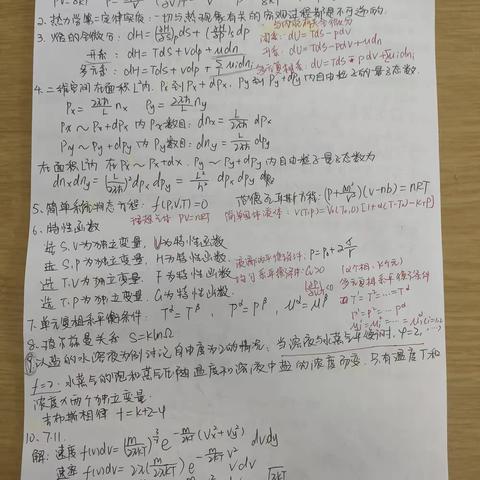 2. 热力学第二定律实质：一切与热现象有关的实际过程都是不可逆的.
3. 焓的全微分：dH = (∂H/∂S)p dS + (∂H/∂p)s dp
闭系：dU = Tds - pdv
开系：dH = Tds + vdp + udn
开系：dU = Tds - pdv + udn
多元系：dH = Tds + vdp + Σ uidni
4. 二维空间 在面积L²内, Px到Px+dPx, Py到Py+dPy内自由粒子的量子态数.
Px = 2πħ/L nx Py = 2πħ/L ny
Px ~ Px+dPx 内Px数目：dnx = L/2πħ dpx
Py ~ Py+dPy 内Py数目：dny = L/2πħ dpy
在面积L²内 在Px~Px+dx, Py~Py+dPy内自由粒子量子态数为
dnxdny = (L/2πħ)² dpx dpy = L²/h² dpx dpy
5. 简单系统物态方程：f(P,V,T)=0 范德瓦耳斯方程：(P+an²/V²)(v-nb)=nRT
理想气体 PV=nRT 简单固体液体：V(T,P)=V0(T0,0)[1+α(T-T0)-KTP]
6. 特性函数
选S,V为独立变量, U为特性函数
选S,P为独立变量, H为特性函数
选T,V为独立变量, F为特性函数
选T,P为独立变量, G为特性函数.
P=P0+2σ/r
7. 单元复相系平衡条件：Tα=Tβ , Pα=Pβ , uα=uβ
多元复相系平衡条件
8. 玻尔兹曼关系 S=klnΩ
9. 以盐的水溶液为例讨论自由度为2的情况, 当溶液与水蒸气平衡时, φ=2,
f=2. 水蒸气的饱和蒸气压随温度和溶液中盐的浓度而变. 只有温度T和
浓度x两个独立变量.
吉布斯相律 f=k+2-φ
10. 7.11.
解：速度 f(v)dv =
速率 f(v)dv =